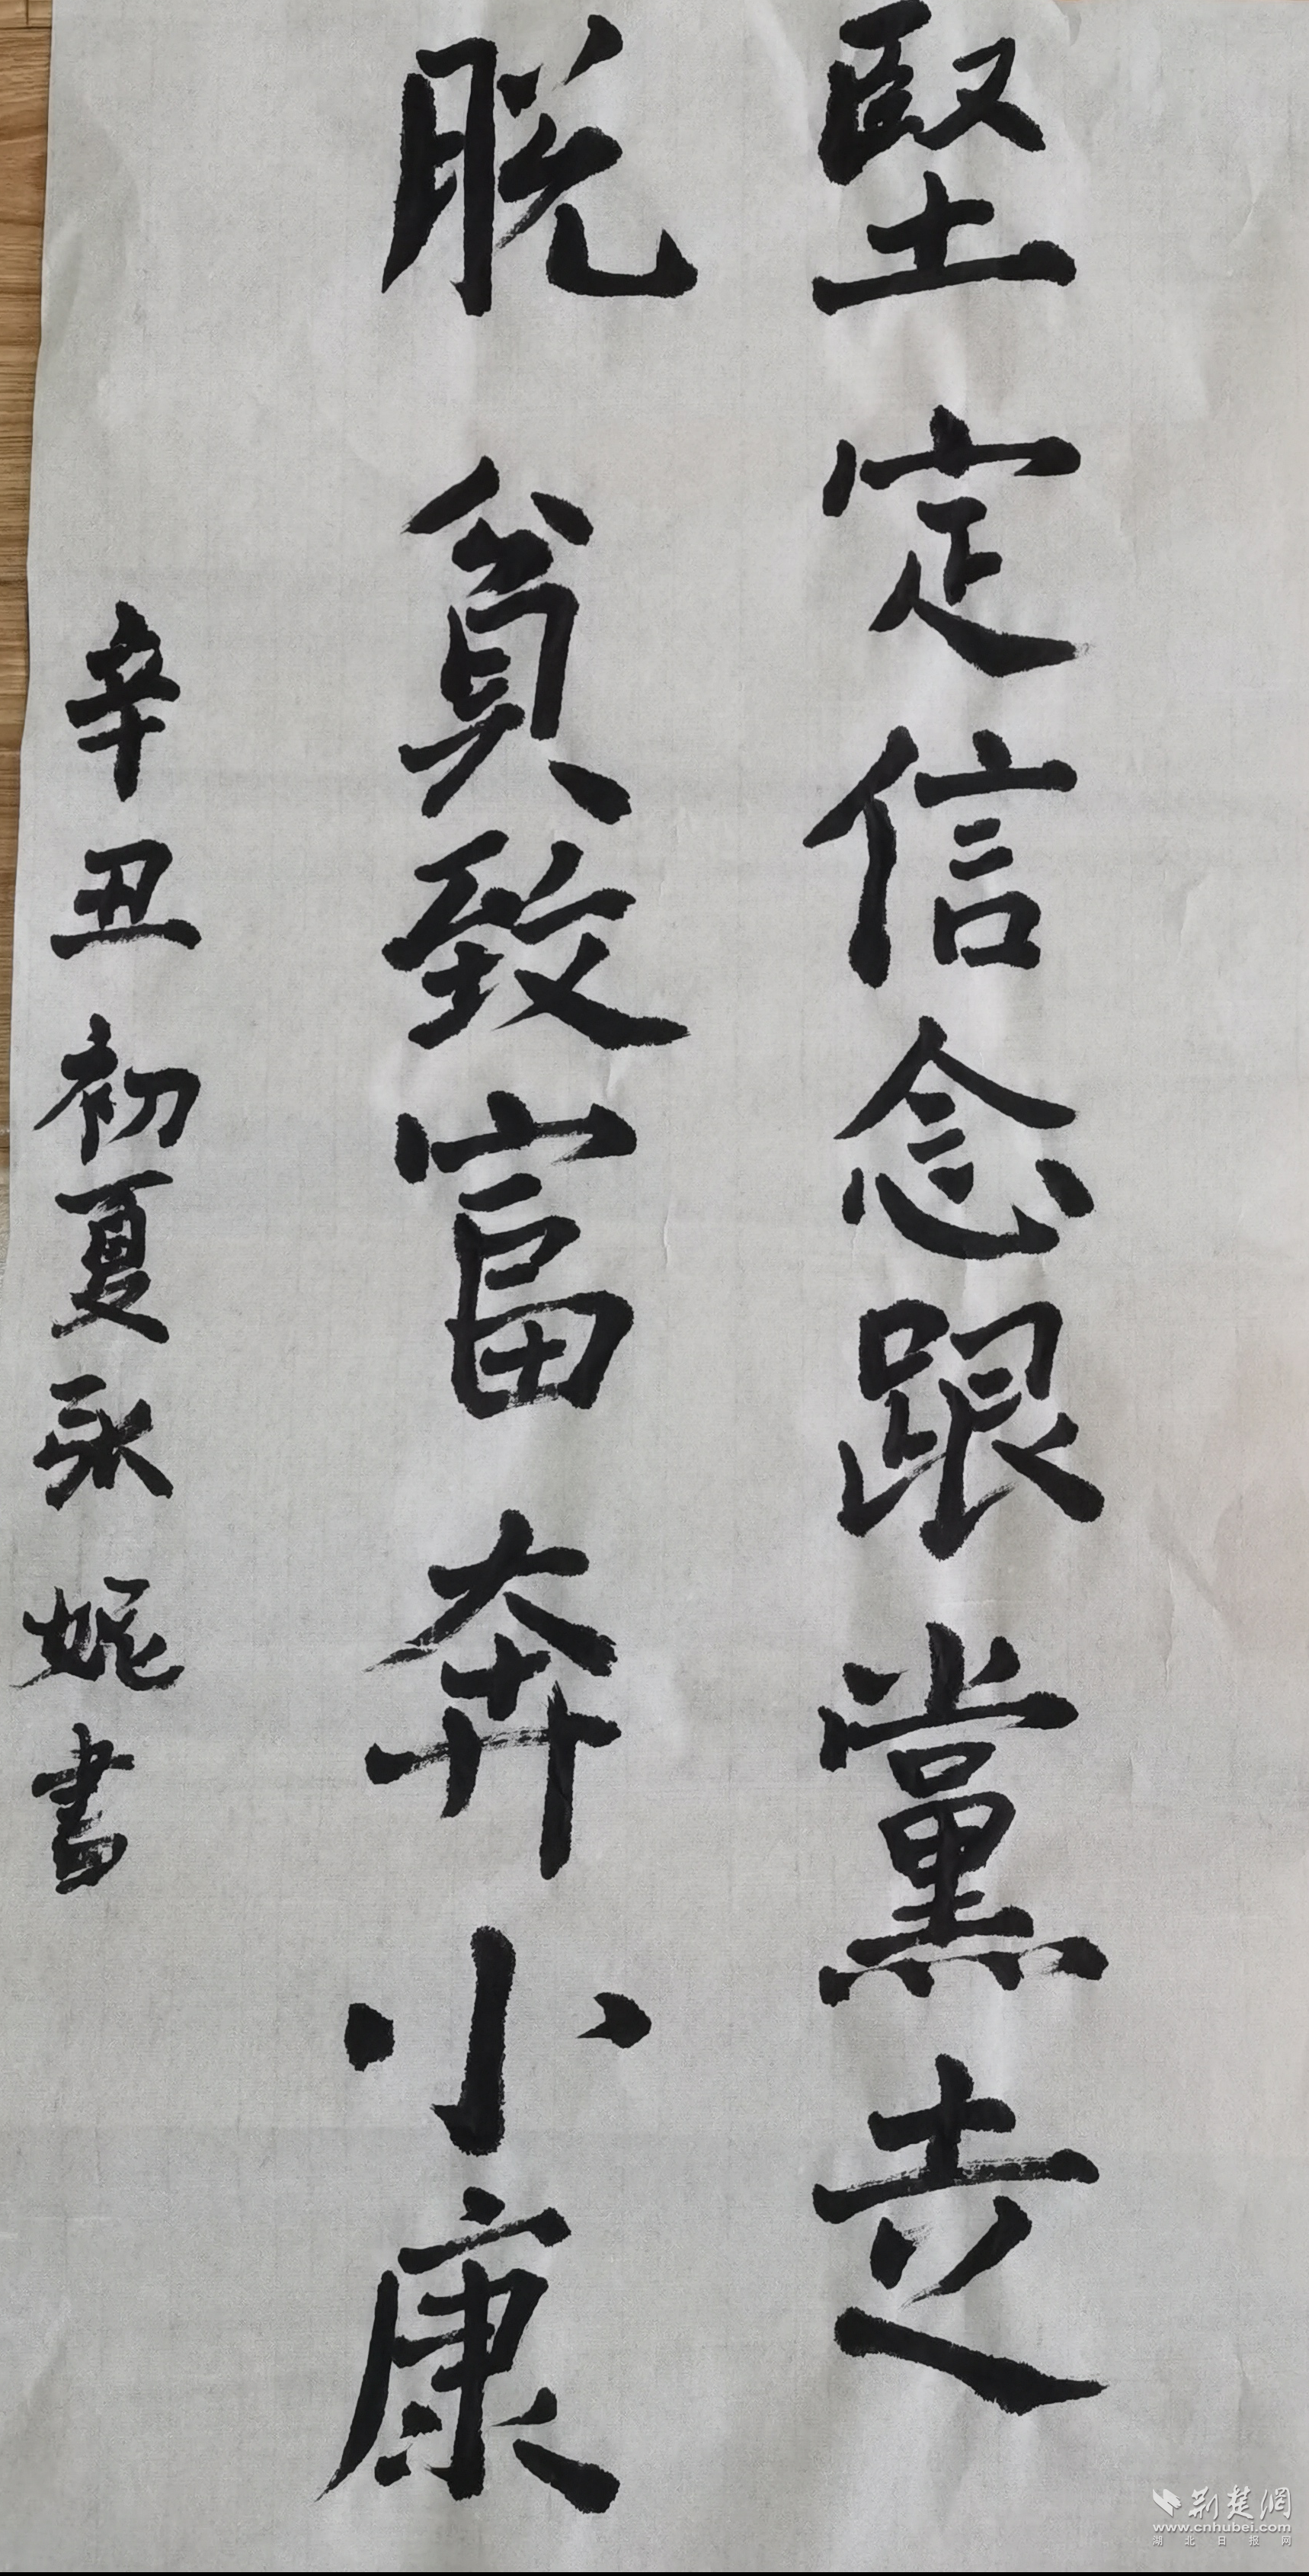 堅定信念跟黨走
脱貧致富奔小康
辛丑初夏永妮書
荆楚網
www.cnhubei.com
湖北日报网